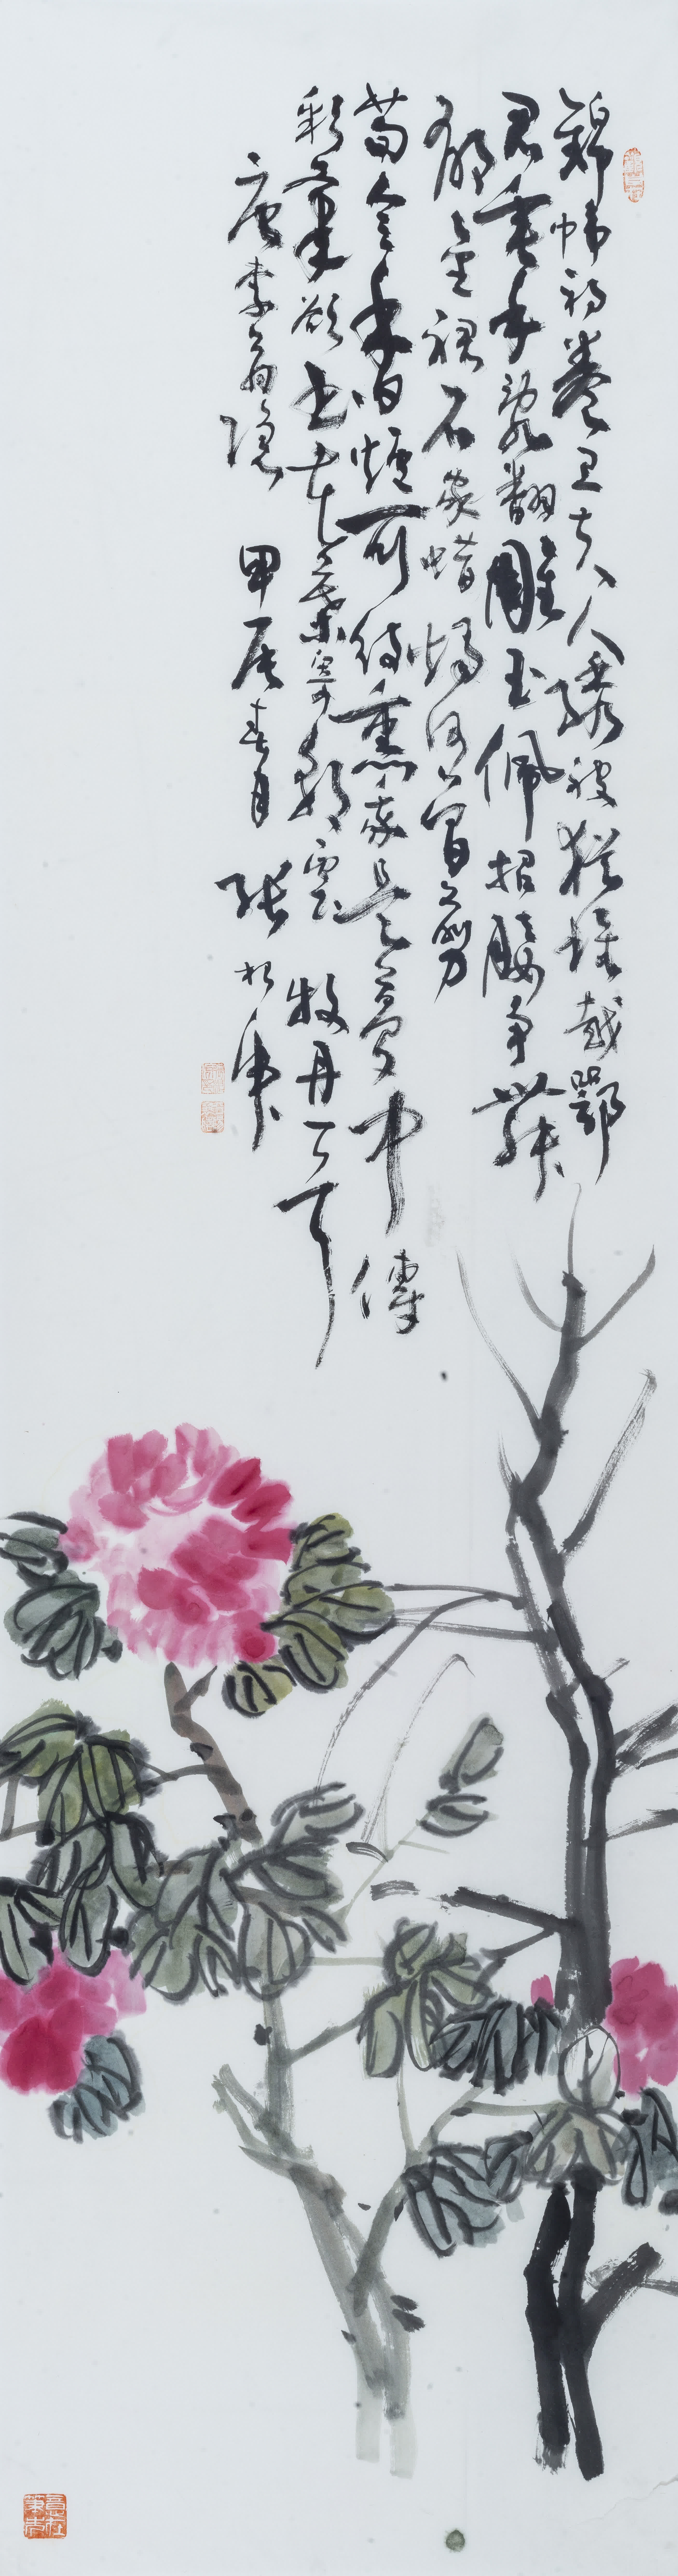 錦帏初卷卫夫人绣被犹堆越鄂
君垂手乱翻雕玉佩招腰争舞
郁金裙石家蜡烛何曾剪
荀令香炉可待熏我是梦中傳
彩筆欲书花葉寄朝雲 牡丹
唐李商隐 甲辰春月 张